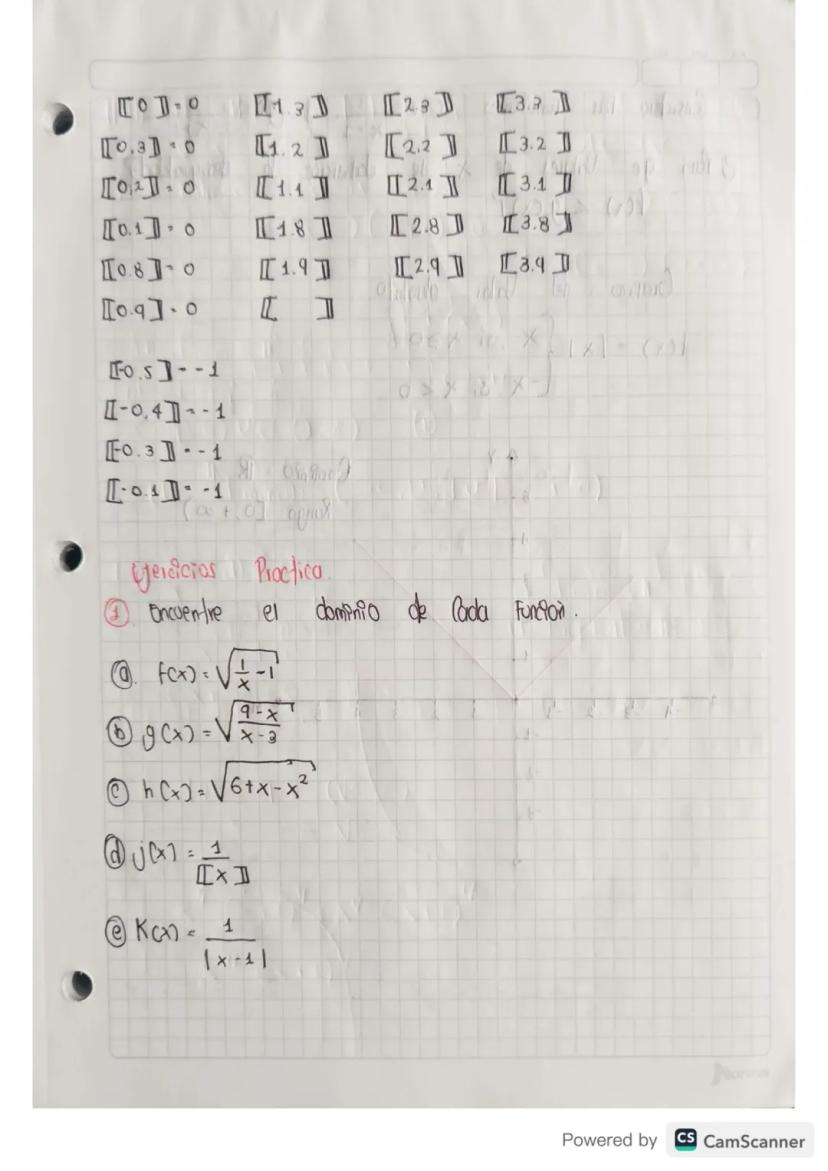 ⟦0⟧=0 ⟦1.3⟧ ⟦2.3⟧ ⟦3.3⟧
⟦0,3⟧=0 ⟦1.2⟧ ⟦2,2⟧ ⟦3.2⟧
⟦0,2⟧=0 ⟦1.1⟧ ⟦2.1⟧ ⟦3.1⟧
⟦0.1⟧=0 ⟦1.8⟧ ⟦2.8⟧ ⟦3.8⟧
⟦0.8⟧=0 ⟦1.9⟧ ⟦2.9⟧ ⟦3.9⟧
⟦0.9⟧=0 ⟦ ⟧
⟦-0.5⟧=-1
⟦-0,4⟧=-1
⟦-0.3⟧=-1
⟦-0.1⟧=-1
Ejercicios Practica
① Encuentre el dominio de Cada Función.
ⓐ. f(x)=√(1/x -1)
ⓑ g(x)=√((9-x)/(x-3))
ⓒ h(x)=√(6+x-x²)
ⓓ j(x)=1/⟦x⟧
ⓔ K(x)=1/|x-1|
Norma
Powered by CS CamScanner